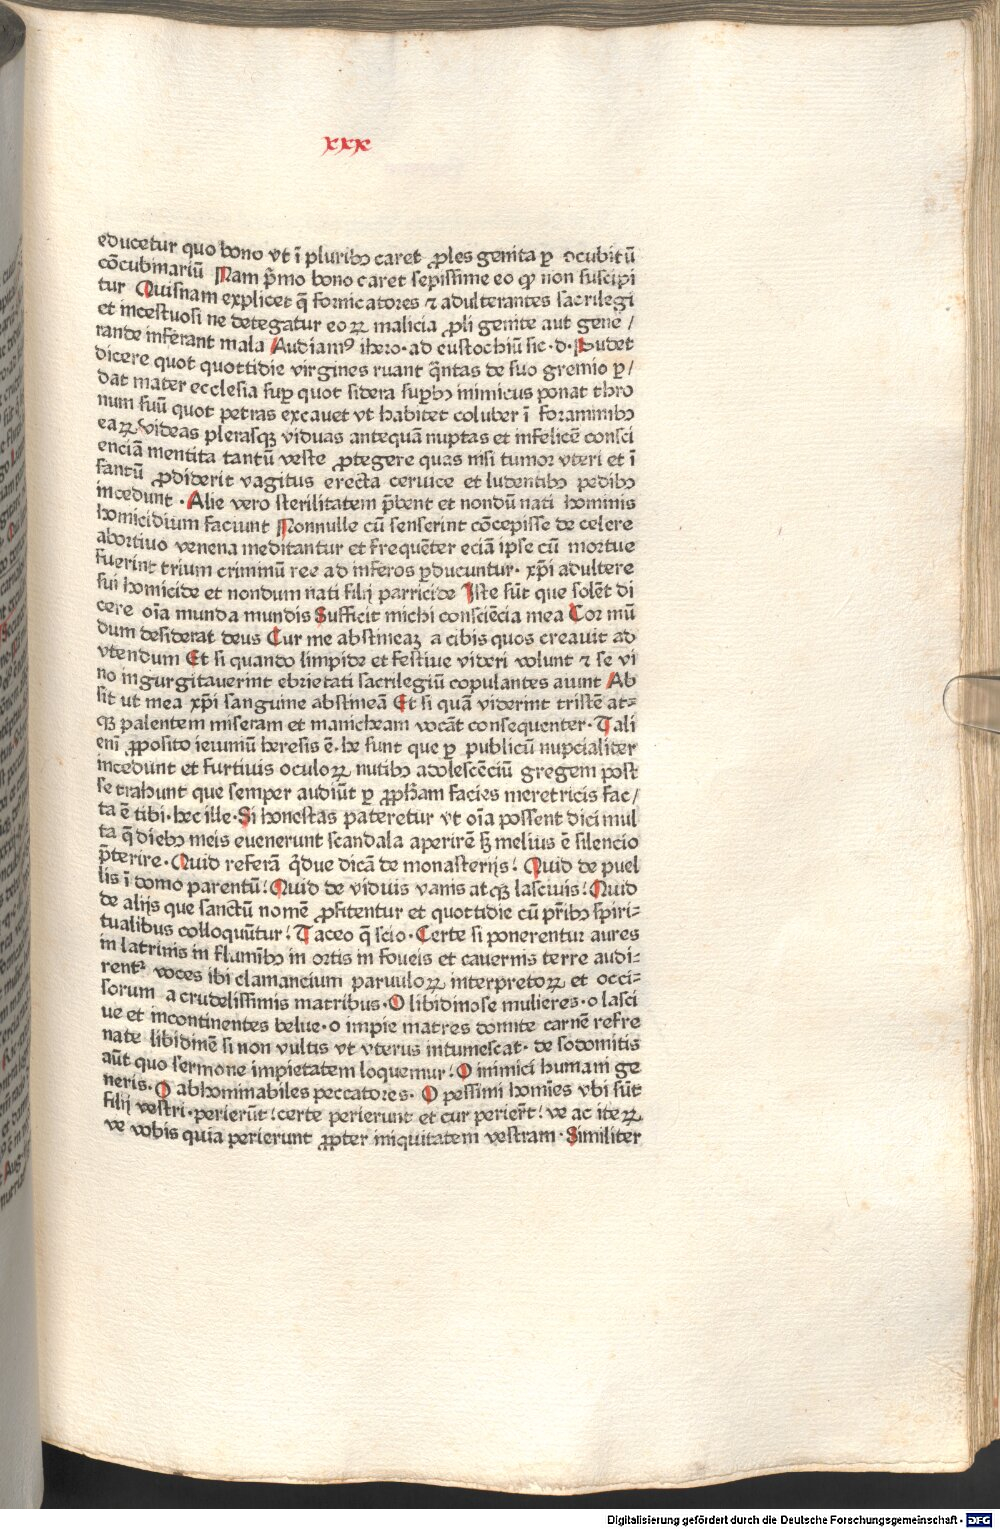 xxx
educetur quo bono vt ī pluribꝫ caret ꝓles genita ꝑ ↄcubitū
cōcubinariū Nam p̄mo bono caret sepissime eo ꝙ non suscipi
tur Quisnam explicet q̄ fornicatores ⁊ adulterantes sacrilegi
et incestuosi ne detegatur eoꝝ malicia ꝓli genite aut gene /
rande inferant mala Audiamꝰ ihero· ad eustochiū sic · d· Pudet
dicere quot quottidie virgines ruant q̄ntas de suo gremio ꝑ/
dat mater ecclesia suꝑ quot sidera suꝑbꝫ inimicus ponat thro
num suū quot petras excauet vt habitet coluber ī foraminibꝫ
eaꝝ videas plerasqꝫ viduas antequā nuptas et infelicē consci
enciā mentita tantū veste ꝓtegere quas nisi tumor vteri et ī
fantū ꝓdiderit vagitus erecta ceruice et ludentibꝫ pedibꝫ
incedunt · Alie vero sterilitatem p̄bent et nondū nati hominis
homicidium faciunt Nonnulle cū senserint cōcepisse de celere
abortiuo venena meditantur et frequēter eciā ipse cū mortue
fuerint trium criminū ree ad inferos ꝑducuntur· xp̄i adultere
sui homicide et nondum nati filij parricide Iste sūt que solēt di
cere oīa munda mundis Sufficit michi consciēcia mea Cor mū
dum desiderat deus Cur me abstineaꝫ a cibis quos creauit ad
vtendum Et si quando limpide et festiue videri volunt ⁊ se vi
no ingurgitauerint ebrietati sacrilegiū copulantes aiunt Ab
sit ut mea xp̄i sanguine abstineā Et si quā viderint tristē at⸗
qꝫ palentem miseram et manicheam vocāt consequenter· Tali
enī ꝓposito ieiuniū heresis ē· he sunt que ꝑ publicū nupcialiter
incedunt et furtiuis oculoꝝ nutibꝫ adolescēciū gregem post
se trahunt que semper audiūt ꝑ ꝓphām facies meretricis fac/
ta ē tibi· hec ille· Si honestas pateretur vt oīa possent dici mul
ta q̄ diebꝫ meis euenerunt scandala aperirē sꝫ melius ē silencio
p̄terire· Quid referā q̄due dicā de monasterijs! Quid de puel
lis ī domo parentū! Quid de viduis vanis atqꝫ lasciuis! Quid
de alijs que sanctū nomē ꝓfitentur et quottidie cū pr̄ibꝫ sp̄iri⸗
tualibus colloquūtur! Taceo q̄ scio· Certe si ponerentur aures
in latrinis in flumībꝫ in ortis in foueis et cauernis terre audi⸗
rentᷣ voces ibi clamancium paruuloꝝ interpretoꝝ et occi⸗
sorum a crudelissimis matribus· O libidinose mulieres· o lasci
ue et incontinentes belue· o impie matres domite carnē refre
nate libidinē si non vultis vt vterus intumescat· de sodomitis
aūt quo sermone impietatem loquemur! O inimici humani ge
neris· O abhominabiles peccatores· O pessimi homīes vbi sūt
filij vestri· perierūt! certe perierunt et cur perier̄t! ve ac iteꝝ
ve vobis quia perierunt ꝓpter iniquitatem vestram· Similiter
Digitalisierung gefördert durch die Deutsche Forschungsgemeinschaft - DFG